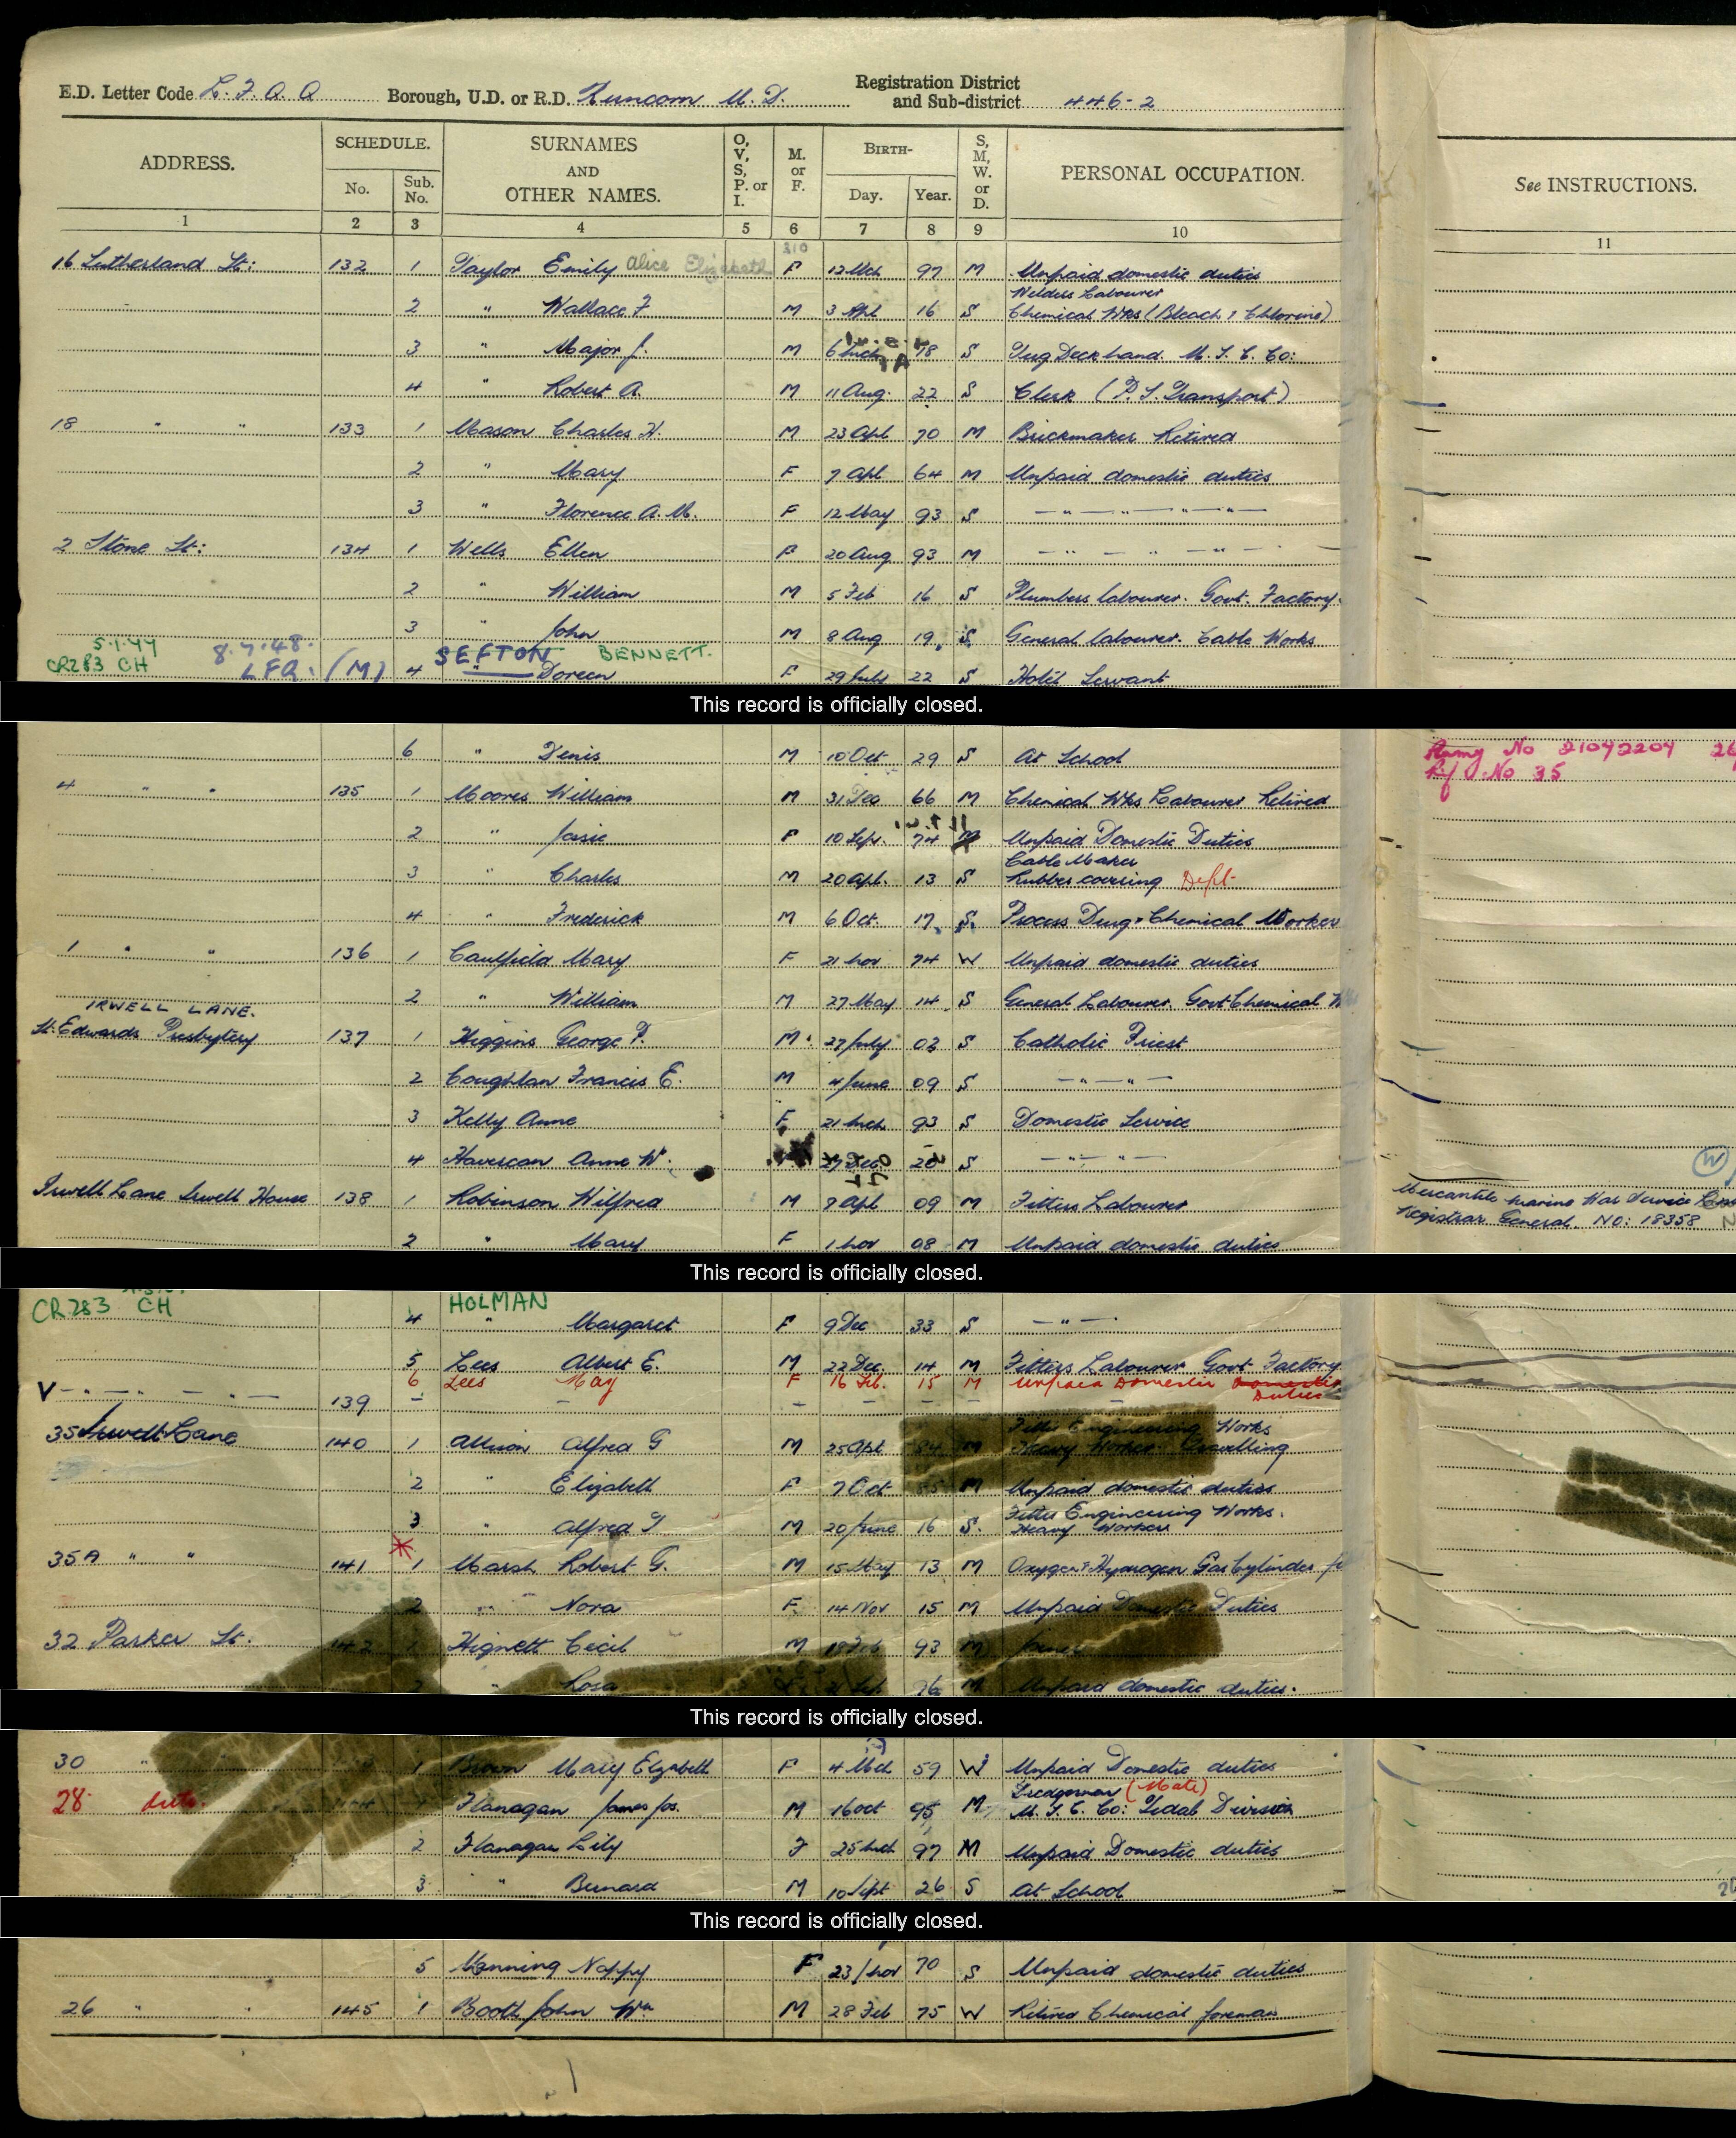 E.D. Letter Code L. F. Q. Q Borough, U.D. or R.D. Runcorn U. D. Registration District and Sub-district 446-2
ADDRESS. SCHEDULE. No. Sub. No. SURNAMES AND OTHER NAMES. O, V, S, P. or I. M. or F. BIRTH- Day. Year. S, M, W. or D. PERSONAL OCCUPATION. See INSTRUCTIONS.
1 2 3 4 5 6 7 8 9 10 11
16 Sutherland St: 132 1 Taylor Emily Alice Elizabeth F 12 Mch 97 M Unpaid domestic duties
Welders Labourer
2 " Wallace F M 3 Apl 16 S Chemical Wks (Bleach & Chlorine)
3 " Major J. M 6 Mch 18 S Tug Deckhand. M. S. C. Co:
4 " Robert A. M 11 Aug. 22 S Clerk (P. S. Transport)
18 " " 133 1 Mason Charles H. M 23 Apl 70 M Brickmaker Retired
2 " Mary F 7 Apl 64 M Unpaid domestic duties
3 " Florence A. M. F 12 May 93 S — " — " — " — " —
2 Stone St: 134 1 Wells Ellen F 20 Aug 93 M — " — " — " —
2 " William M 5 Feb 16 S Plumbers labourer. Govt. Factory.
3 " John M 8 Aug 19 S General labourer. Cable Works
5.1.44 8.7.48. SEFTON BENNETT.
CR283 CH LFQ. (M) 4 " Doreen F 29 July 22 S Hotel Servant
This record is officially closed.
6 " Denis M 10 Oct 29 S At School
Army No 21042204 26
Rif O. No 35
4 " " 135 1 Moores William M 31 Dec 66 M Chemical Wks Labourer Retired
2 " Josie F 10 Sep. 74 Unpaid Domestic Duties
Cable Maker
3 " Charles M 20 Apl. 13 S Rubber covering Dept
4 " Frederick M 6 Oct. 17 S. Process Drug & Chemical Worker
1 " " 136 1 Caulfield Mary F 21 Nov 74 W Unpaid domestic duties
2 " William M 27 May 14 S General Labourer. Govt Chemical
IRWELL LANE.
St. Edwards Presbytery 137 1 Higgins George P. M 27 July 03 S Catholic Priest
2 Coughlan Francis E. M 4 June 09 S — " — " —
3 Kelly Anne F 21 Mch 93 S Domestic Service
4 Havercan Anne W. 27 Dec 20 S — " — " —
W
Irwell Lane Irwell House 138 1 Robinson Wilfred M 7 Apl 09 M Fitters Labourer
Mercantile Marine War Service
Registrar General No: 18358
2 " Mary F 1 Nov 08 M Unpaid domestic duties
This record is officially closed.
CR283 CH HOLMAN
4 " Margaret F 9 Dec 33 S — " —
5 Lees Albert E. M 22 Dec. 14 M Fitters Labourer Govt Factory
6 Lees May F 16 Feb. 15 M Unpaid Domestic Domestic Duties
V — " — " — " — 139 — — — — — —
35 Irwell Lane 140 1 Allison Alfred G M 25 Apl 84 M Fitter Engineering Works
Heavy Worker Travelling
2 " Elizabeth F 7 Oct 85 M Unpaid domestic duties
3 " Alfred T M 20 June 16 S. Fitter Engineering Works.
Heavy Worker
35A " " 141 1 Marsh Robert G. M 15 May 13 M Oxygen & Hydrogen Gas Cylinder
2 " Nora F 14 Nov 15 M Unpaid Domestic Duties
32 Parker St. 142 1 Hignett Cecil M 18 Feb 93 M Joiner
2 " Rosa 96 M Unpaid domestic duties.
This record is officially closed.
30 " " 1 Brown Mary Elizabeth F 4 Mch 59 W Unpaid Domestic duties
Dredgerman (Mate)
28 ditto 144 Flanagan James Jos. M 16 Oct 95 M M. S. C. Co: Tidal Division
2 Flanagan Lily F 25 Mch 97 M Unpaid Domestic duties
3 " Bernard M 10 Sept 26 S At School
This record is officially closed.
5 Manning Nappy F 23 Nov 70 S Unpaid domestic duties
26 " " 145 1 Booth John Wm M 28 Feb 75 W Retired Chemical foreman